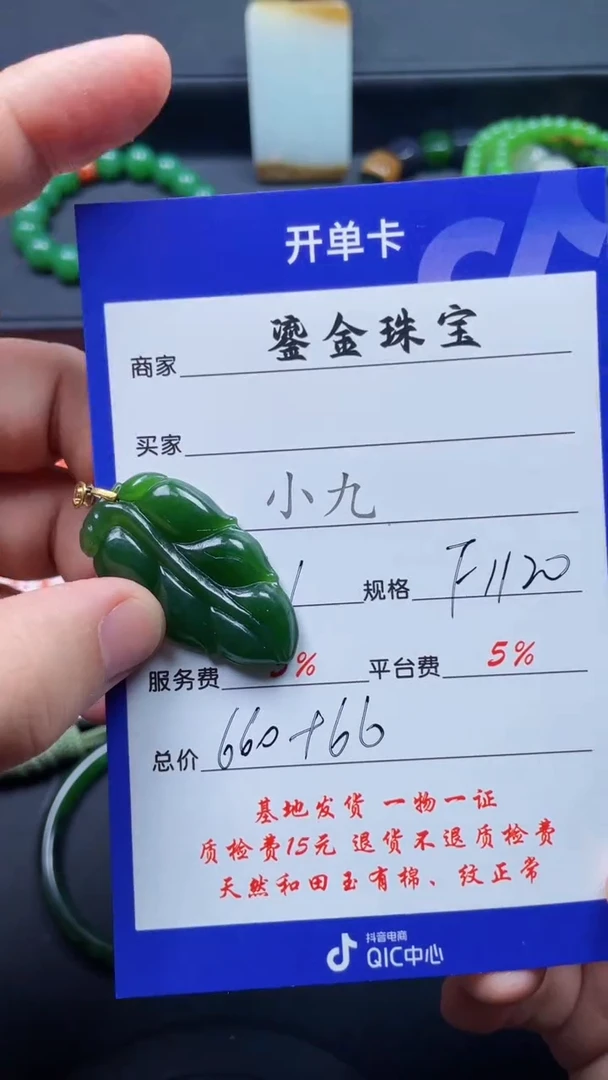 开单卡
商家 鎏金珠宝
买家
小九
1 规格 F1120
服务费 5% 平台费 5%
总价 660+66
基地发货 一物一证
质检费15元 退货不退质检费
天然和田玉有棉、纹正常
抖音电商
QIC中心